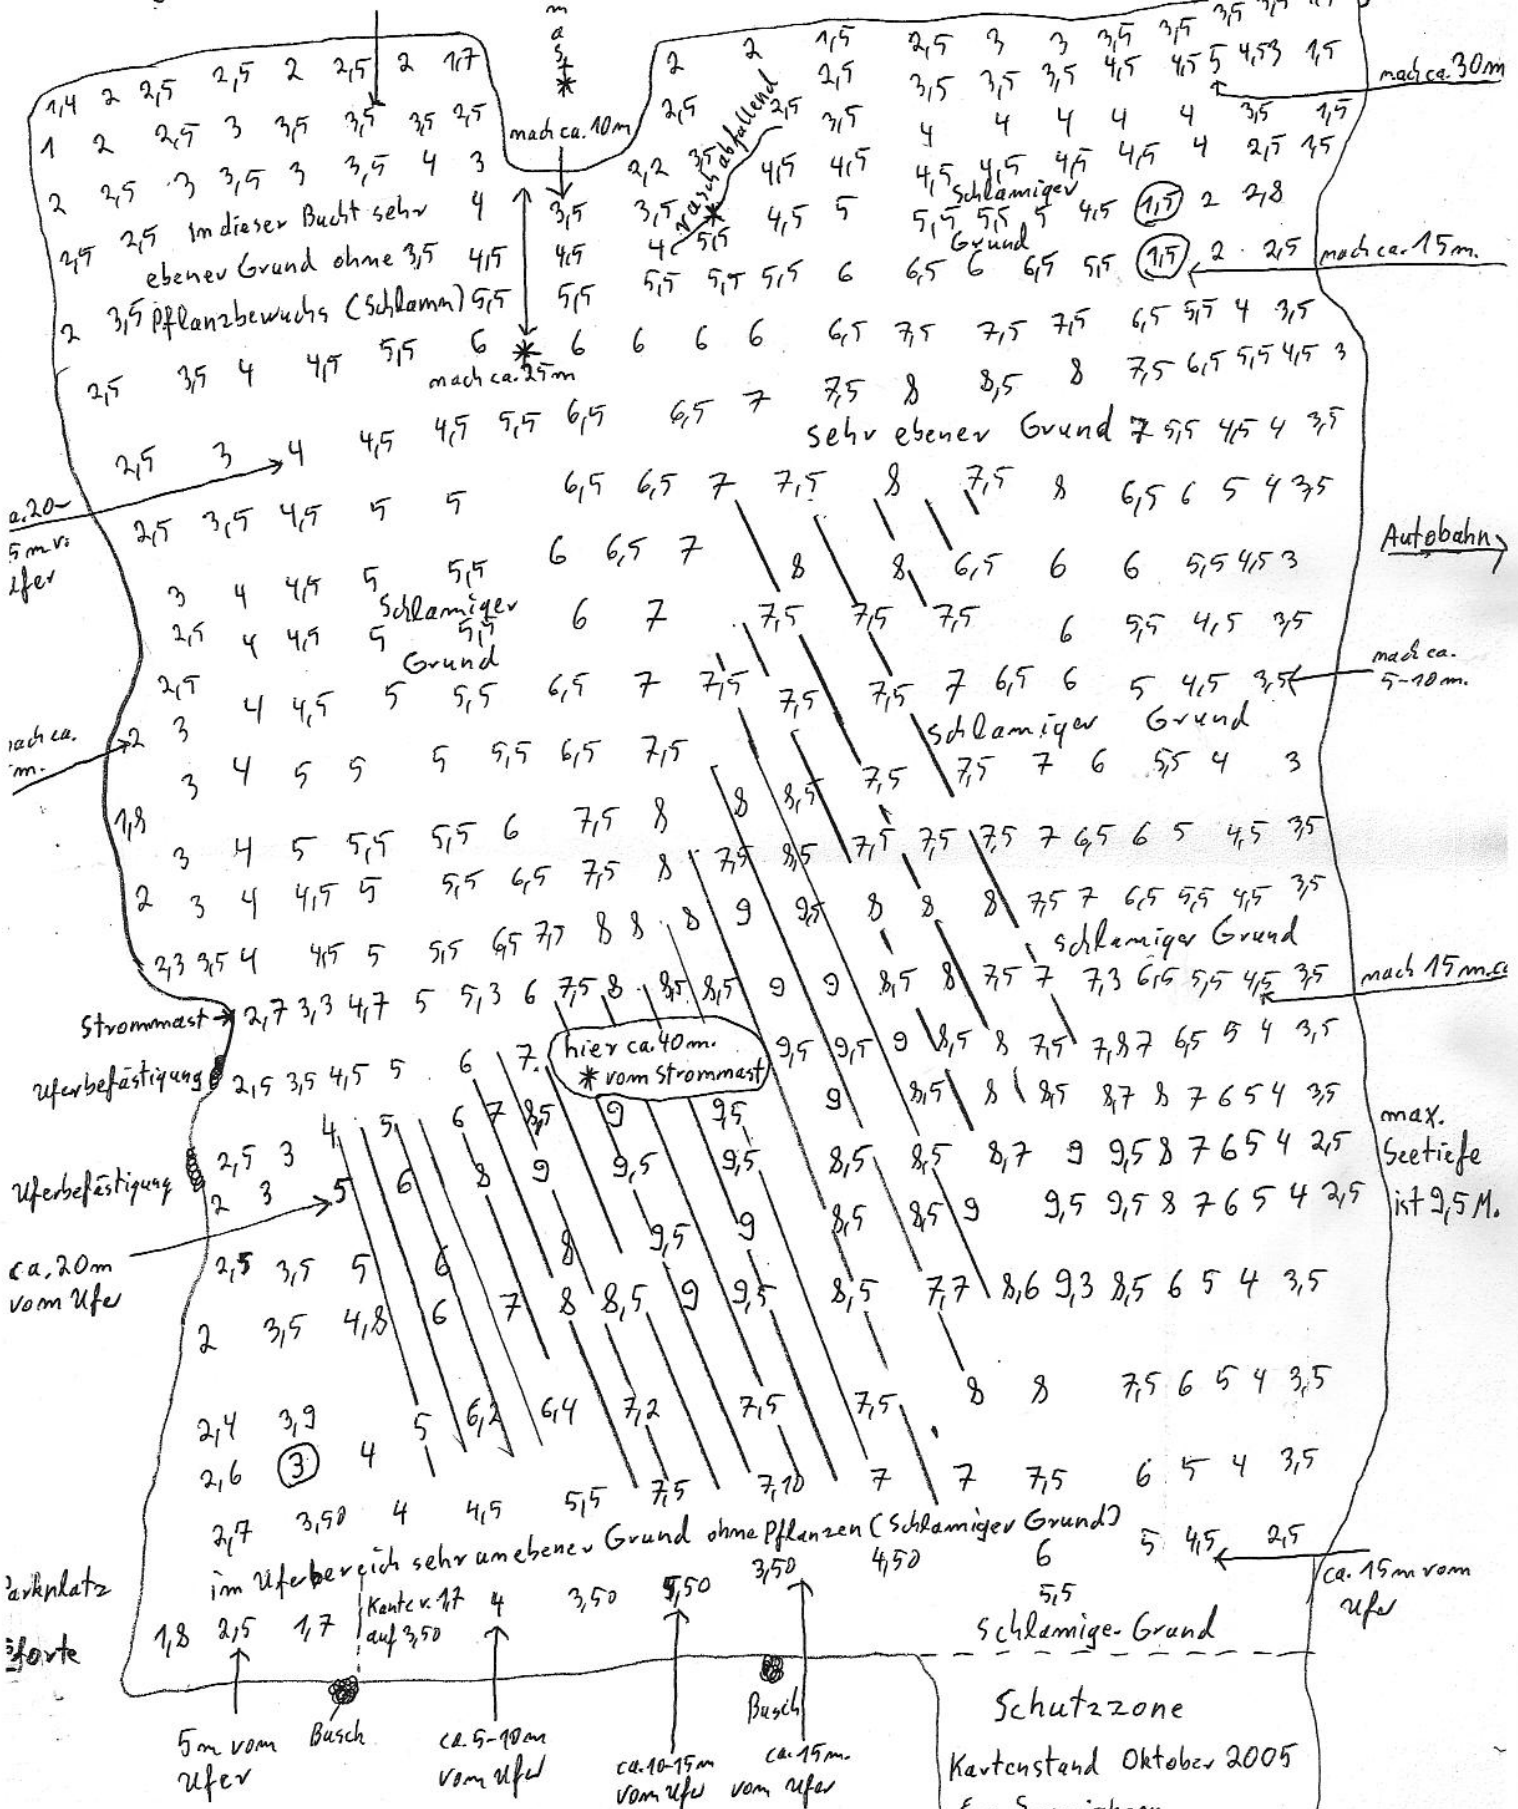 mast
2 2 1,5 2,5 3 3 3,5 3,5 3,5 3,5
1,4 2 2,5 2,5 2 2,5 2 1,7
2,5 3,5 3,5 3,5 4,5 4,5 5 4,5 3 1,5
nach ca. 30m
1 2 2,5 3 3,5 3,5 3,5 2,5
nach ca. 10m
2,5 2,5 3,5 4 4 4 4 4 3,5 1,5
rasch abfallend
2 2,5 3 3,5 3 3,5 4 3
2,2 3,5 4,5 4,5 4,5 4,5 4,5 4,5 4 2,5 1,5
Schlamiger
Grund
2,5 2,5 In dieser Bucht sehr 4 3,5 3,5 4,5 5 5,5 5,5 5 4,5 1,5 2 2,8
ebener Grund ohne 3,5 4,5 4,5 4 5,5
5,5 5,5 5,5 6 6,5 6 6,5 5,5 1,5 2 2,5
nach ca. 15m.
2 3,5 Pflanzbewuchs (Schlamm) 5,5 5,5
2,5 3,5 4 4,5 5,5 6 6 6 6 6 6,5 7,5 7,5 7,5 6,5 5,5 4 3,5
nach ca. 25m
7,5 8 8,5 8 7,5 6,5 5,5 4,5 3
2,5 3 4 4,5 4,5 5,5 6,5 6,5 7
sehr ebener Grund 7 5,5 4,5 4 3,5
a. 20-
5m v.
Ufer
2,5 3,5 4,5 5 5 6,5 6,5 7 7,5 8 7,5 8 6,5 6 5 4 3,5
Autobahn
3 4 4,5 5 5,5 6 6,5 7 8 8 6,5 6 6 5,5 4,5 3
Schlamiger
Grund
2,5 4 4,5 5 5,5 6 7 7,5 7,5 7,5 6 5,5 4,5 3,5
2,5 4 4,5 5 5,5 6,5 7 7,5 7,5 7,5 7 6,5 6 5 4,5 3,5
nach ca.
5-10m.
Schlamiger Grund
nach ca.
m.
2 3
3 4 5 5 5 5,5 6,5 7,5 7,5 7,5 7 6 5,5 4 3
1,8
3 4 5 5,5 5,5 6 7,5 8 8 8,5
7,5 8,5 7,5 7,5 7,5 7 6,5 6 5 4,5 3,5
2 3 4 4,5 5 5,5 6,5 7,5 8
9 9,5 8 8 8 7,5 7 6,5 5,5 4,5 3,5
Schlamiger Grund
2,3 3,5 4 4,5 5 5,5 6,5 7,5 8 8 8
8,5 8,5 9 9 8,5 8 7,5 7 7,3 6,5 5,5 4,5 3,5
nach 15m. ca
Strommast 2,7 3,3 4,7 5 5,3 6 7,5 8
hier ca. 40m.
vom Strommast
9,5 9,5 9 8,5 8 7,5 7,8 7 6,5 5 4 3,5
Uferbefästigung 2,5 3,5 4,5 5 6 7
9 8,5 8 8,5 8,7 8 7 6 5 4 3,5
4 5 6 7 8,5 9 9,5
max.
Seetiefe
ist 9,5 M.
Uferbefästigung
2,5 3 8 9 9,5 9,5 8,5 8,5 8,7 9 9,5 8 7 6 5 4 2,5
2 3 5 6
8,5 8,5 9 9,5 9,5 8 7 6 5 4 2,5
ca. 20m
vom Ufer
2,5 3,5 5 6 8 9,5 9
2 3,5 4,8 6 7 8 8,5 9 9,5 8,5 7,7 8,6 9,3 8,5 6 5 4 3,5
2,4 3,9 5 6,2 6,4 7,2 7,5 7,5 8 8 7,5 6 5 4 3,5
2,6 3 4
2,7 3,50 4 4,5 5,5 7,5 7,10 7 7 7,5 6 5 4 3,5
im Uferbereich sehr unebener Grund ohne Pflanzen (Schlamiger Grund)
3,50 4,50 6 5 4,5 2,5
ca. 15m vom
Ufer
arkplatz
forte
1,8 2,5 1,7 Kante v. 1,7
auf 3,50
4 3,50 5,50 5,5
Schlamige Grund
5m vom
Ufer
Busch
ca. 5-10m
vom Ufer
ca. 10-15m
vom Ufer
Busch
ca. 15m.
vom Ufer
Schutzzone
Kartenstand Oktober 2005